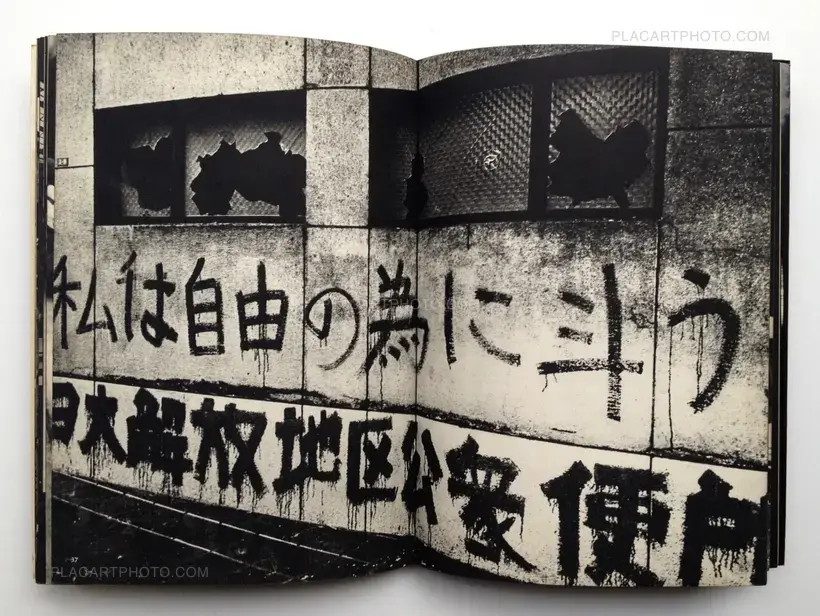 PLACARTPHOTO.COM
私は自由の為に斗う
日大解放地区公衆便
37
PLACARTPHOTO.COM